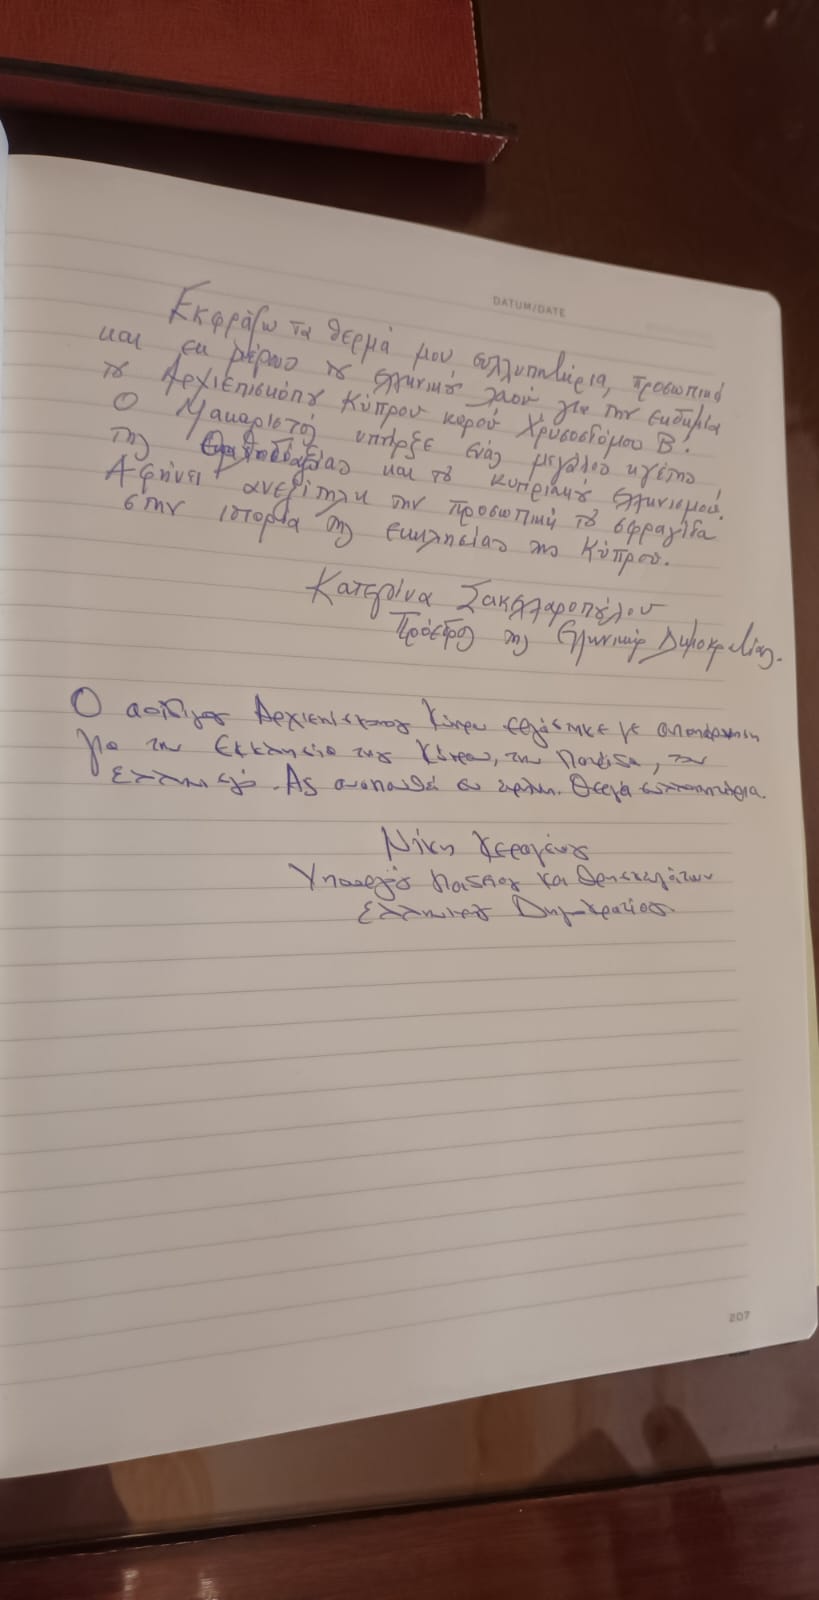 DATUM/DATE
Εκφράζω τα θερμά μου συλλυπητήρια, προσωπικά
και εκ μέρους του ελληνικού λαού για την εκδημία
του Αρχιεπισκόπου Κύπρου κυρού Χρυσοστόμου Β'.
Ο Μακαριστός υπήρξε ένας μεγάλος ηγέτης
της Ορθοδοξίας και του κυπριακού ελληνισμού.
Αφήνει ανεξίτηλη την προσωπική του σφραγίδα
στην ιστορία της εκκλησίας της Κύπρου.
Κατερίνα Σακελλαροπούλου
Πρόεδρος της Ελληνικής Δημοκρατίας.
Ο αοίδιμος Αρχιεπίσκοπος Κύπρου εργάστηκε με αυταπάρνηση
για την Εκκλησία της Κύπρου, την Παιδεία, τον
Ελληνισμό. Ας αναπαυθεί εν ειρήνη. Θερμά συλλυπητήρια.
Νίκη Κεραμέως
Υπουργός Παιδείας και Θρησκευμάτων
Ελληνικής Δημοκρατίας
207